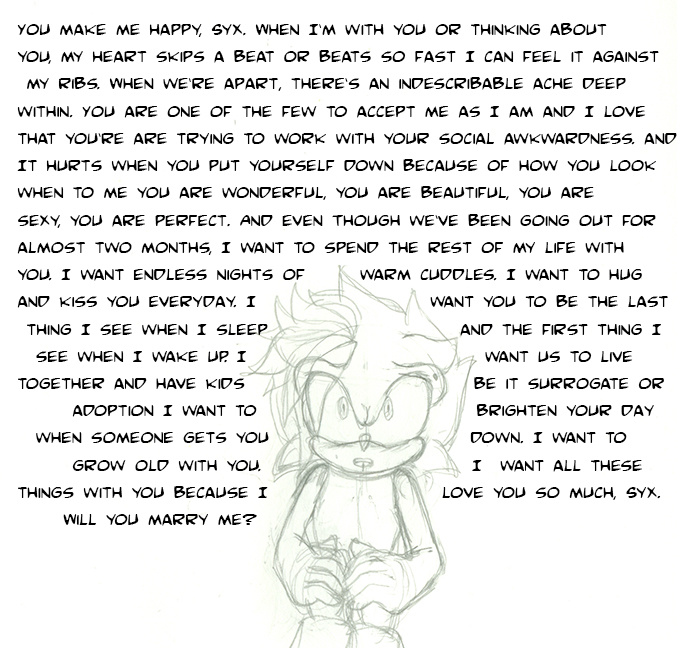 YOU MAKE ME HAPPY, SYX. WHEN I'M WITH YOU OR THINKING ABOUT
YOU, MY HEART SKIPS A BEAT OR BEATS SO FAST I CAN FEEL IT AGAINST
MY RIBS. WHEN WE'RE APART, THERE'S AN INDESCRIBABLE ACHE DEEP
WITHIN. YOU ARE ONE OF THE FEW TO ACCEPT ME AS I AM AND I LOVE
THAT YOU'RE ARE TRYING TO WORK WITH YOUR SOCIAL AWKWARDNESS. AND
IT HURTS WHEN YOU PUT YOURSELF DOWN BECAUSE OF HOW YOU LOOK
WHEN TO ME YOU ARE WONDERFUL, YOU ARE BEAUTIFUL, YOU ARE
SEXY, YOU ARE PERFECT. AND EVEN THOUGH WE'VE BEEN GOING OUT FOR
ALMOST TWO MONTHS, I WANT TO SPEND THE REST OF MY LIFE WITH
YOU. I WANT ENDLESS NIGHTS OF WARM CUDDLES. I WANT TO HUG
AND KISS YOU EVERYDAY. I WANT YOU TO BE THE LAST
THING I SEE WHEN I SLEEP AND THE FIRST THING I
SEE WHEN I WAKE UP. I WANT US TO LIVE
TOGETHER AND HAVE KIDS BE IT SURROGATE OR
ADOPTION I WANT TO BRIGHTEN YOUR DAY
WHEN SOMEONE GETS YOU DOWN. I WANT TO
GROW OLD WITH YOU. I WANT ALL THESE
THINGS WITH YOU BECAUSE I LOVE YOU SO MUCH, SYX.
WILL YOU MARRY ME?